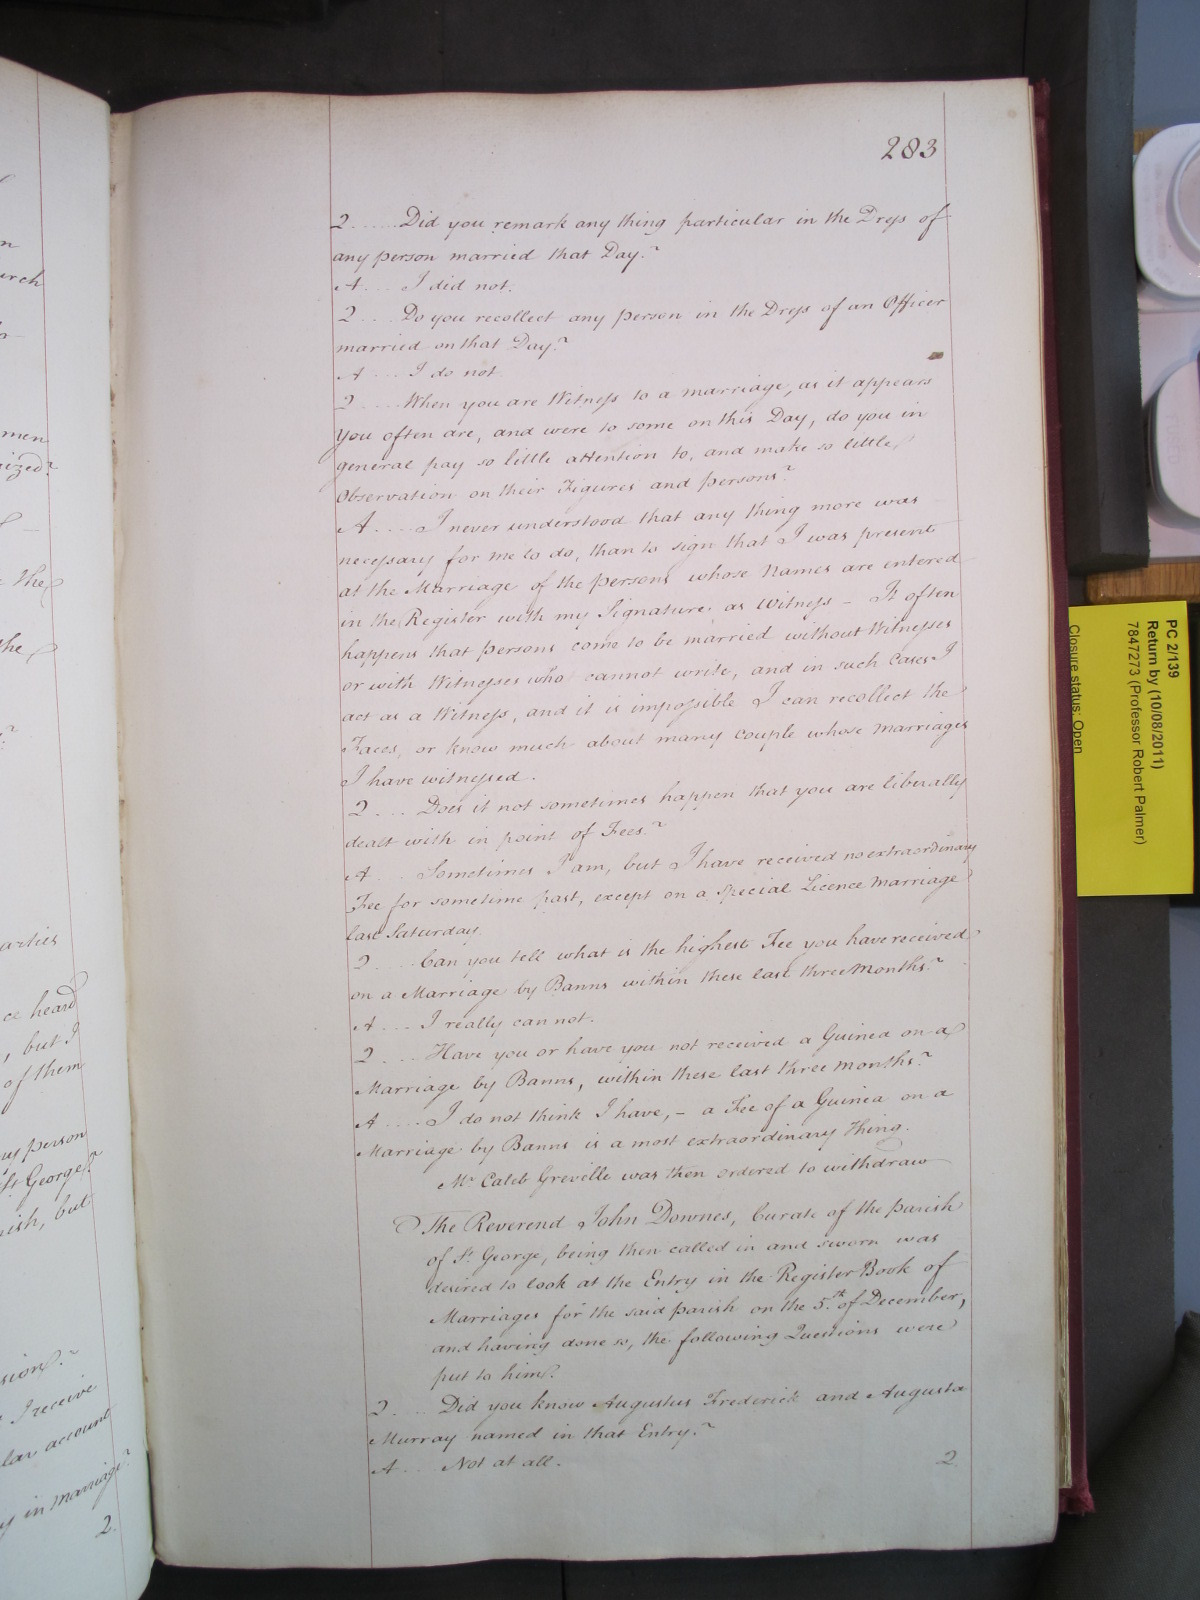 283
Q......Did you remark any thing particular in the Dress of
any person married that Day?
A.... I did not.
Q.... Do you recollect any person in the Dress of an Officer
married on that Day?
A.... I do not
Q.....When you are Witness to a marriage, as it appears
you often are, and were to some on this Day, do you in
general pay so little attention to, and make so little
Observation on their Figures and persons?
A.....I never understood that any thing more was
necessary for me to do, than to sign that I was present
at the Marriage of the persons whose Names are entered
in the Register with my Signature as Witness – It often
happens that persons come to be married without Witnesses
or with Witnesses who cannot write, and in such Cases I
act as a Witness, and it is impossible I can recollect the
Faces, or know much about many couple whose marriages
I have witnessed.
Q.... Does it not sometimes happen that you are liberally
dealt with in point of Fees?
A.... Sometimes I am, but I have received no extraordinary
Fee for sometime past, except on a special Licence Marriage
last Saturday.
Q.....Can you tell what is the highest Fee you have received
on a Marriage by Banns within these last three Months?
A.... I really can not.
Q.....Have you or have you not received a Guinea on a
Marriage by Banns, within these last three months?
A.....I do not think I have, – a Fee of a Guinea on a
Marriage by Banns is a most extraordinary Thing.
Mr. Caleb Greville was then ordered to withdraw
The Reverend John Downes, Curate of the parish
of St. George, being then called in and sworn was
desired to look at the Entry in the Register Book of
Marriages for the said parish on the 5th of December,
and having done so, the following Questions were
put to him.
Q.... Did you know Augustus Frederick and Augusta
Murray named in that Entry?
A.... Not at all.
Q.
men
the
the
arties
ce heard
, but I
of them
ny person
St George?
rish, but
sion?
I receive
lar account
y in marriage?
Q.
PC 2/139
Return by (10/08/2011)
7847273 (Professor Robert Palmer)
Closure status: Open